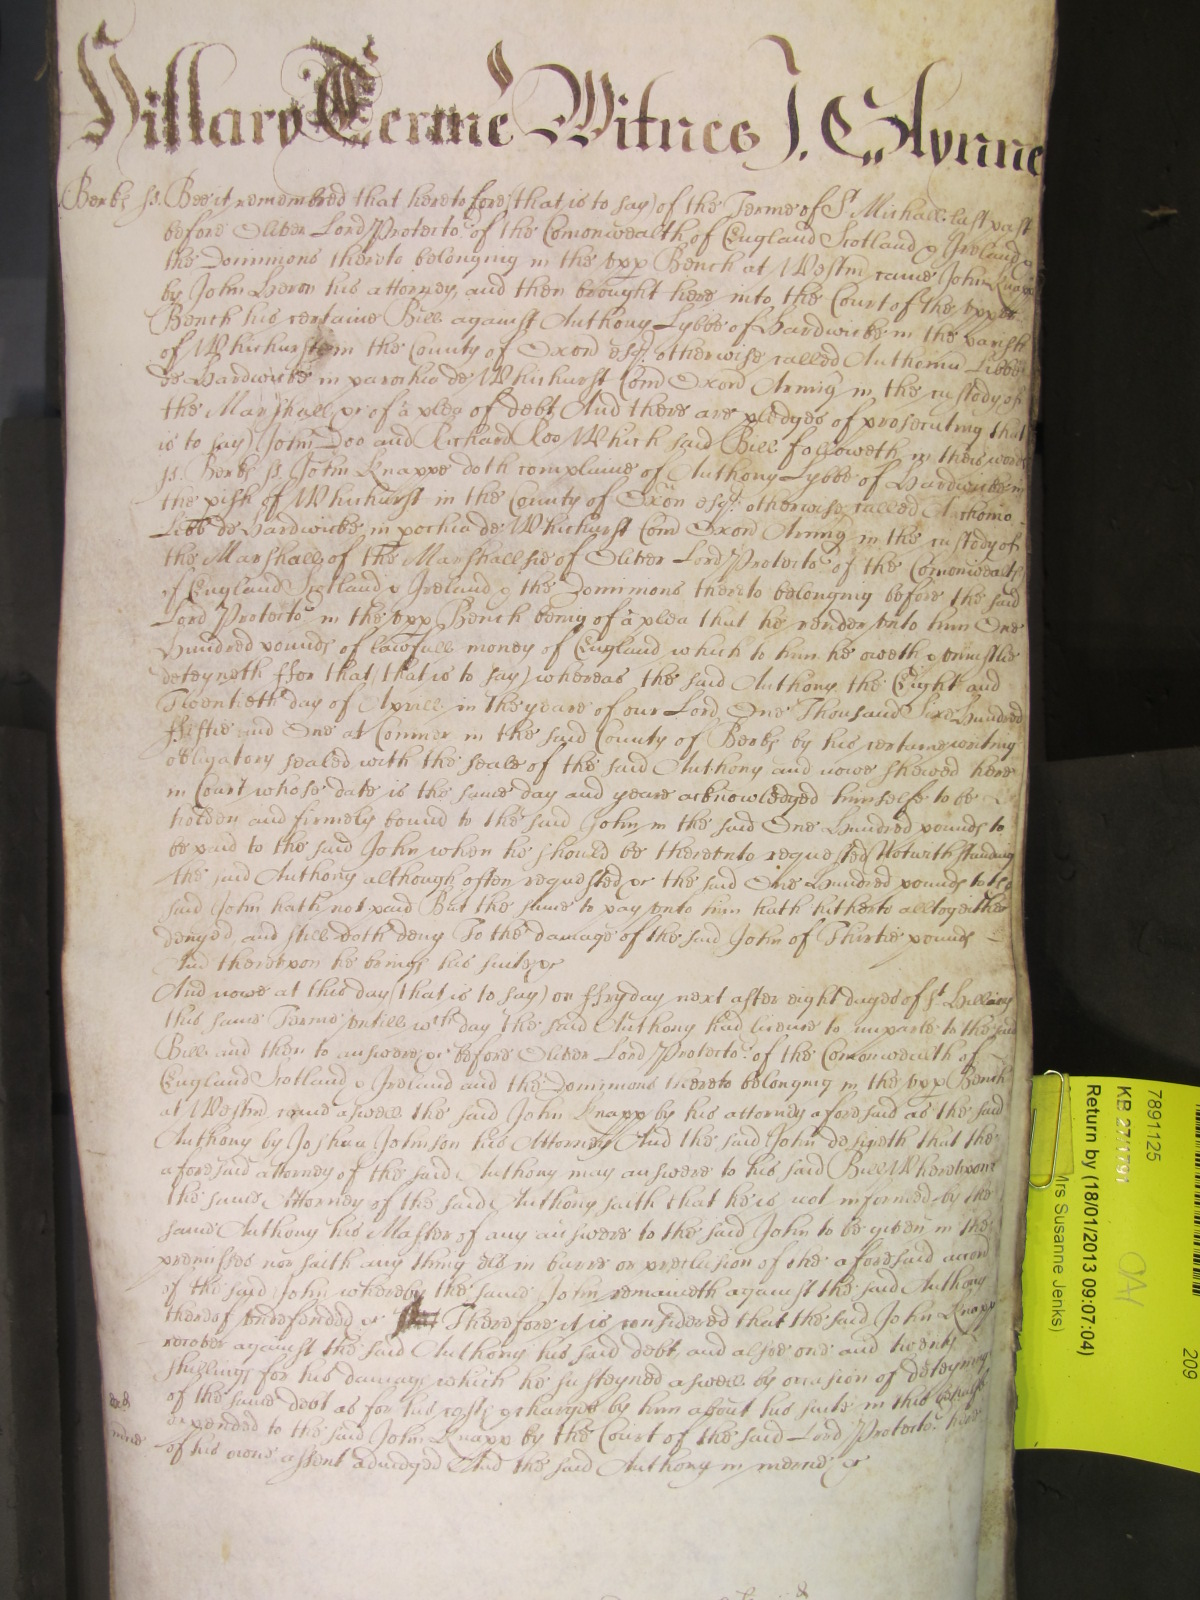 Hillary Terme Witnes J. Glynne
Berks ss. Bee it remembred that heretofore (that is to say) of the Terme of St Michaell last past
before Oliver Lord Protector of the Comonwealth of England Scotland & Ireland &
the Dominions thereto belonging in the upp Bench at Westm came John Knapp
by John Heron his attorney, and then brought here into the Court of the upper
Bench his certaine Bill against Anthony Lybbe of Hardwicke in the parish
of Whichurst in the County of Oxord esqr. otherwise called Anthoniu Libbe
de Hardwicke in parochia de Whichurst Com Oxord Armig in the custody of
the Marshall &c of a plea of debt And there are pledges of prosecuting that
is to say) John Doo and Richard Roo Which said Bill followeth in these words
ss. Berks ss John Knappe doth complaine of Anthony Lybbe of Hardwicke in
the pish of Whichurst in the County of Oxon esqr. otherwise called Anthonio
Libb de Hardwicke in pochia de Whichurst Com Oxord Armig in the custody of
the Marshall of the Marshallsie of Oliver Lord Protector of the Comonwealth
of England Scotland & Ireland & the Dominions thereto belonging before the said
Lord Protector in the upp Bench being of a plea that he render unto him One
Hundred pounds of lawfull money of England which to him he oweth & uniustlie
deteyneth ffor that (that is to say) whereas the said Anthony the Eight and
Twentieth day of Aprill in the yeare of our Lord One Thousand Sixe Hundred
ffiftie and One at Comner in the said County of Berks by his certaine writing
obligatory sealed with the seale of the said Anthony and nowe shewed here
in Court whose date is the same day and yeare acknowledged himselfe to be
holden and firmely bound to the said John in the said One Hundred pounds to
be paid to the said John when he should be thereunto requested Notwithstanding
the said Anthony although often requested &c the said One Hundred pounds to the
said John hath not paid But the same to pay unto him hath hitherto alltogeather
denyed and still doth deny To the damage of the said John of Thirtie pounds
And thereupon he brings his suite &c
And nowe at this day (that is to say) on ffryday next after eight dayes of St. Hillary
this same Terme untill wch day the said Anthony had licence to imparle to the said
Bill and then to answere &c before Oliver Lord Protector of the Comonwealth of
England Scotland & Ireland and the Dominions thereto belonging in the upp Bench
at Westm came aswell the said John Knapp by his attorney aforesaid as the said
Anthony by Joshua Johnson his Attorney And the said John desireth that the
aforesaid attorney of the said Anthony may answere to his said Bill Whereupon
the same Attorney of the said Anthony saith that he is not informed by the
same Anthony his Master of any answere to the said John to be given in the
premisses nor saith any thing els in barre or preclusion of the aforesaid accon
of the said John whereby the same John remaineth against the said Anthony
thereof undefended &c Therefore it is considered that the said John Knapp
recover against the said Anthony his said debt and alsoe one and twenty
shillings for his damage which he susteyned aswell by occasion of deteyning
of the same debt as for his costs & charges by him about his suite in this behalfe
expended to the said John Knapp by the Court of the said Lord Protector here
of his owne assent adiudged And the said Anthony in mercie &c
7891125
KB 27/1791
Return by (18/01/2013 09:07:04)
Mrs Susanne Jenks)
209